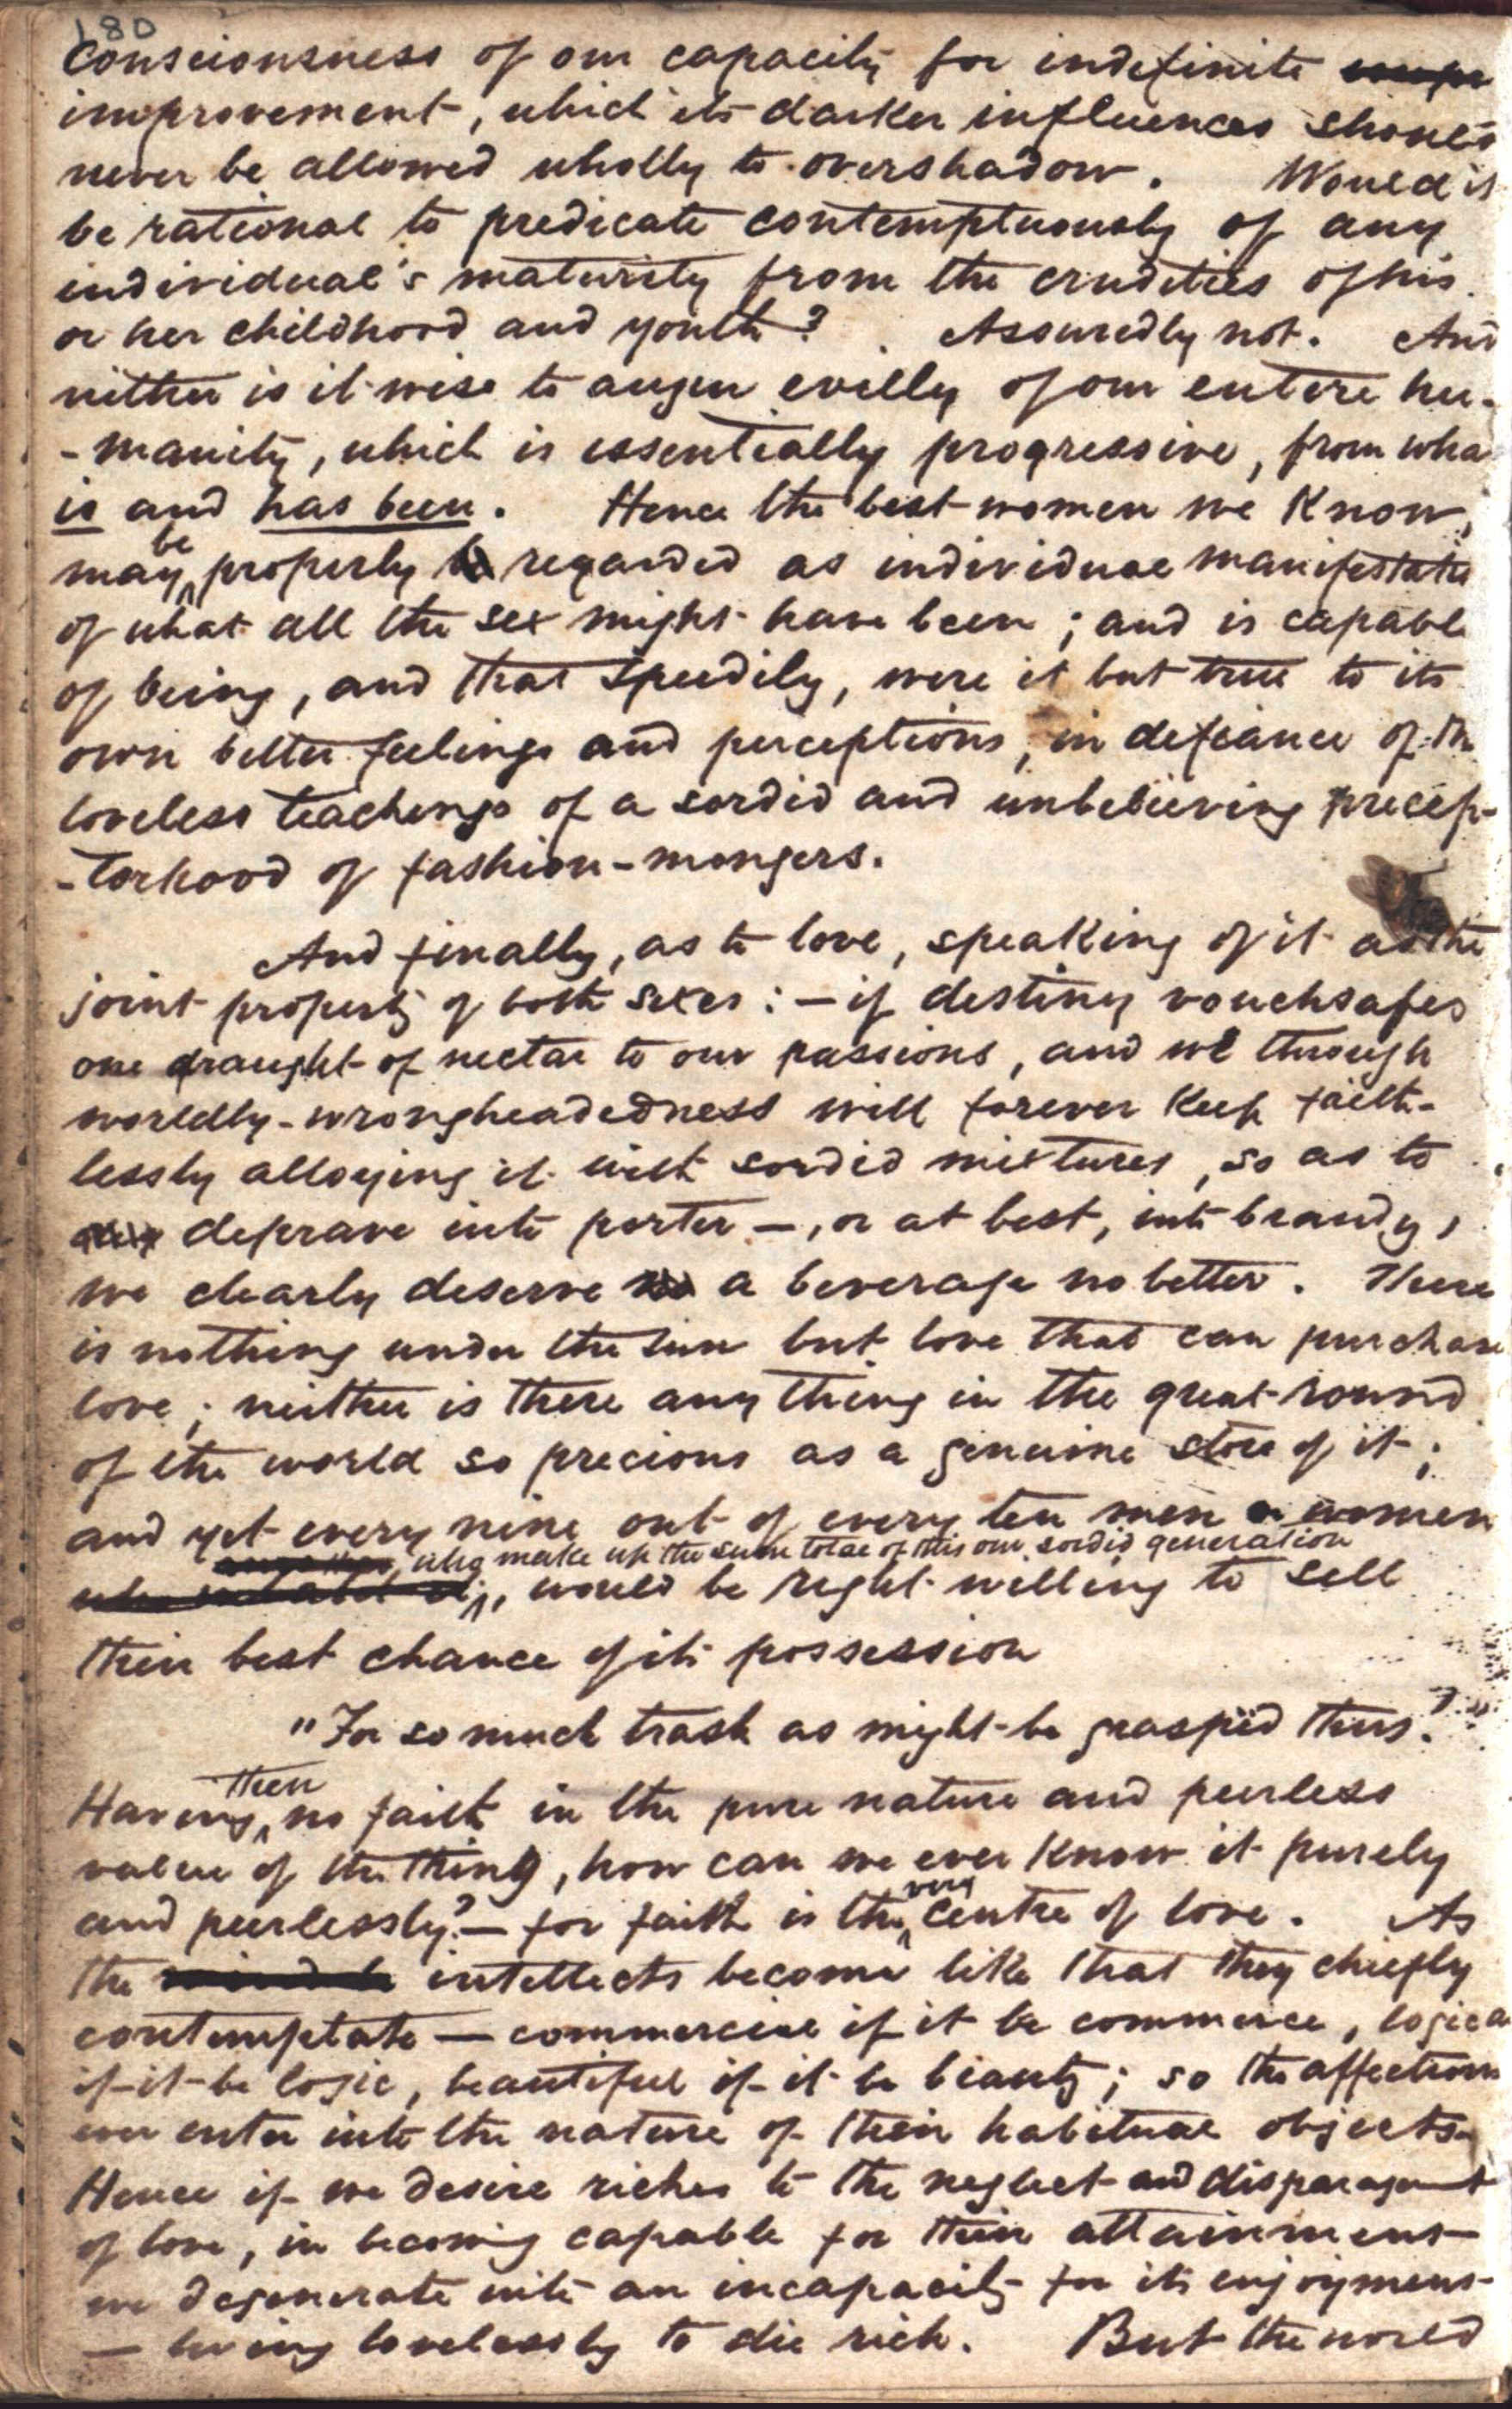 180
consciousness of our capacity for indefinite
improvement, which its darker influences should
never be allowed wholly to overshadow. Would it
be rational to predicate contemptuously of any
individual's maturity from the crudities of his
or her childhood and youth? Assuredly not. And
neither is it wise to augur evilly of our entire hu-
-manity, which is essentially progressive, from wha
is and has been. Hence the best women we know,
may be properly regarded as individual manifestatns
of what all the sex might have been; and is capable
of being, and that speedily, were it but true to its
own better feelings and perceptions, in defiance of the
loveless teachings of a sordid and unbelieving precep-
-torhood of fashion-mongers.
And finally, as to love, speaking of it as the
joint property of both sexes: — if destiny vouchsafes
one draught of nectar to our passions, and we through
worldly-wrongheadedness will forever keep faith-
lessly alloying it with sordid mixtures, so as to
deprave into porter —, or at best, into brandy,
we clearly deserve a beverage no better. There
is nothing under the sun but love that can purchase
love; neither is there any thing in the great round
of the world so precious as a genuine store of it;
and yet every nine out of every ten men or women
who make up the sum total of this our sordid generation
, would be right willing to sell
their best chance of its possession
"For so much trash as might be grasped thus."
Having then no faith in the pure nature and peerless
value of the thing, how can we ever know it purely
and peerlessly? — for faith is the very centre of love. As
the intellects become like that they chiefly
contemplate — commercial if it be commerce, logical
if it be logic, beautiful if it be beauty; so the affections
ever enter into the nature of their habitual objects.
Hence if we desire riches to the neglect and disparagement
of love, in becoming capable for their attainment
we degenerate into an incapacity for its enjoyment
— living lovelessly to die rich. But the world